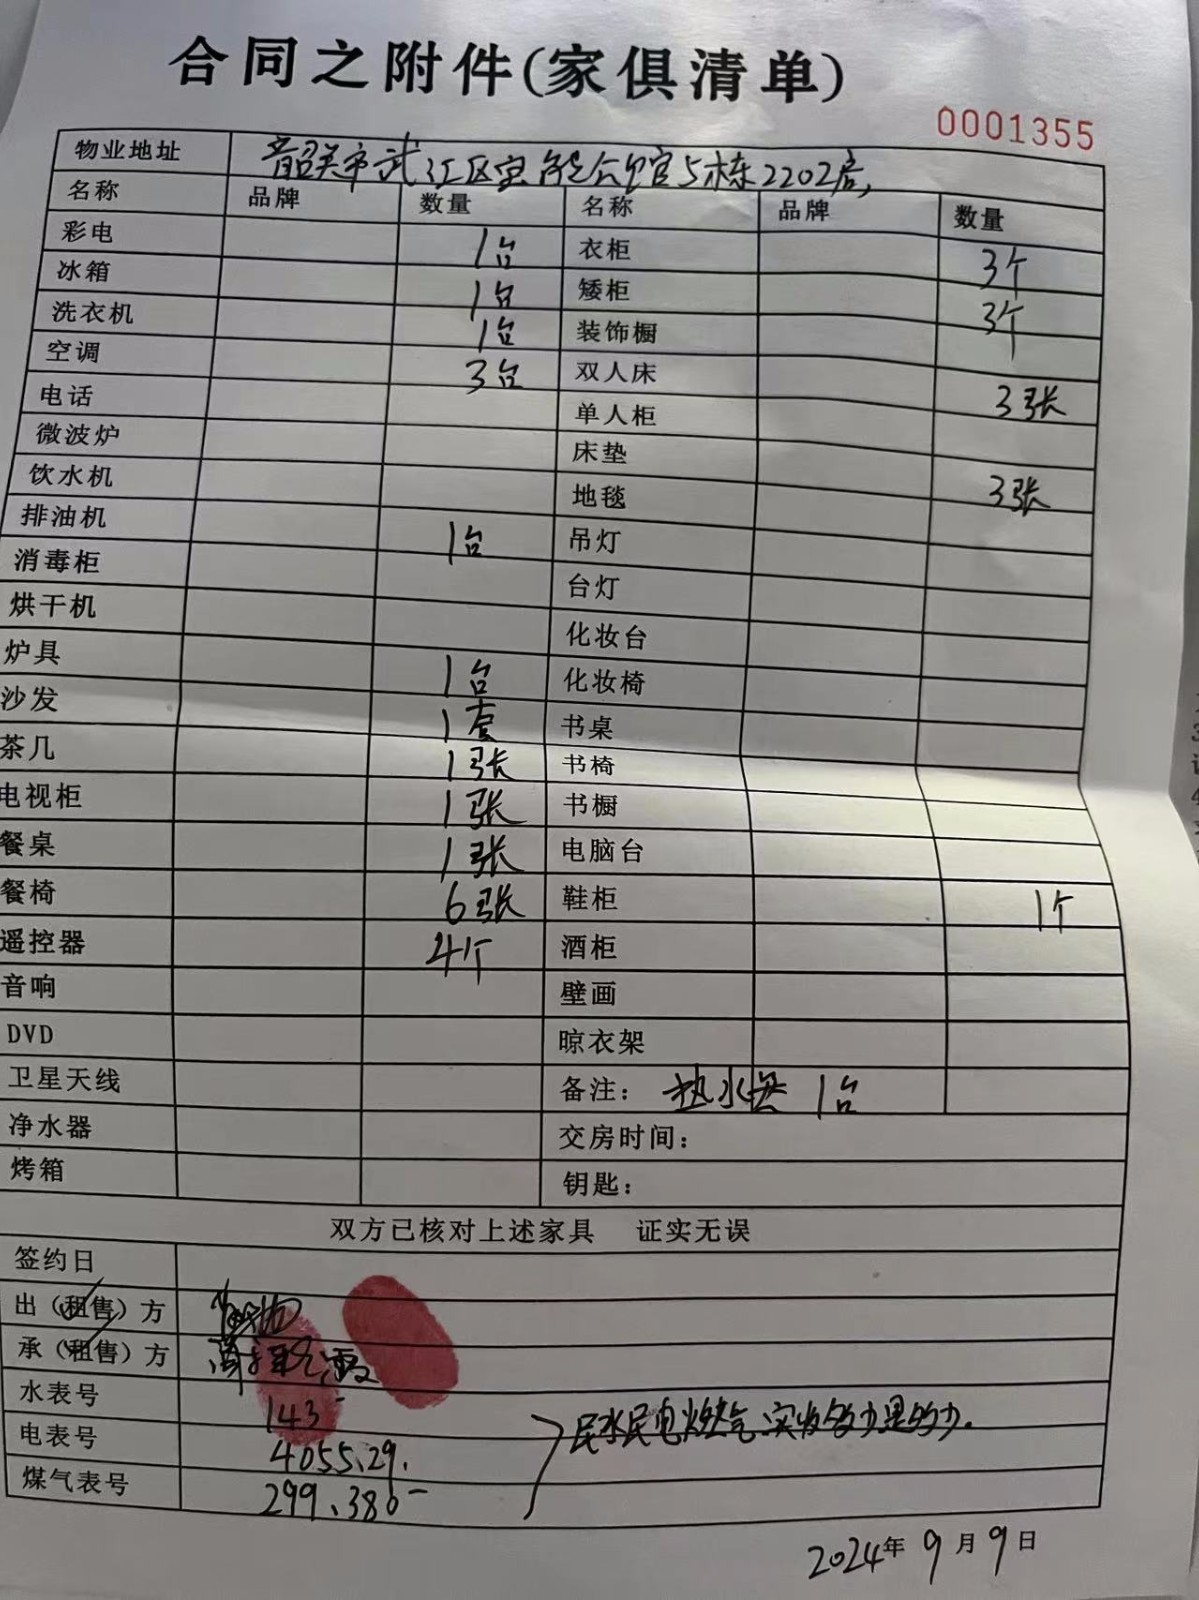 合同之附件(家俱清单)
0001355
物业地址 韶关市武江区宝能公馆5栋2202房,
名称 品牌 数量 名称 品牌 数量
彩电 1台 衣柜 3个
冰箱 1台 矮柜 3个
洗衣机 1台 装饰橱
空调 3台 双人床 3张
电话 单人柜
微波炉 床垫 3张
饮水机 地毯
排油机 1台 吊灯
消毒柜 台灯
烘干机 化妆台
炉具 1台 化妆椅
沙发 1套 书桌
茶几 1张 书椅
电视柜 1张 书橱
餐桌 1张 电脑台
餐椅 6张 鞋柜 1个
遥控器 4个 酒柜
音响 壁画
DVD 晾衣架
卫星天线 备注: 热水器 1台
净水器 交房时间:
烤箱 钥匙:
双方已核对上述家具 证实无误
签约日
出(租售)方
承(租售)方
水表号 143
电表号 4055.29.
煤气表号 299.386
民水民电燃气实收多少是多少.
2024年9月9日